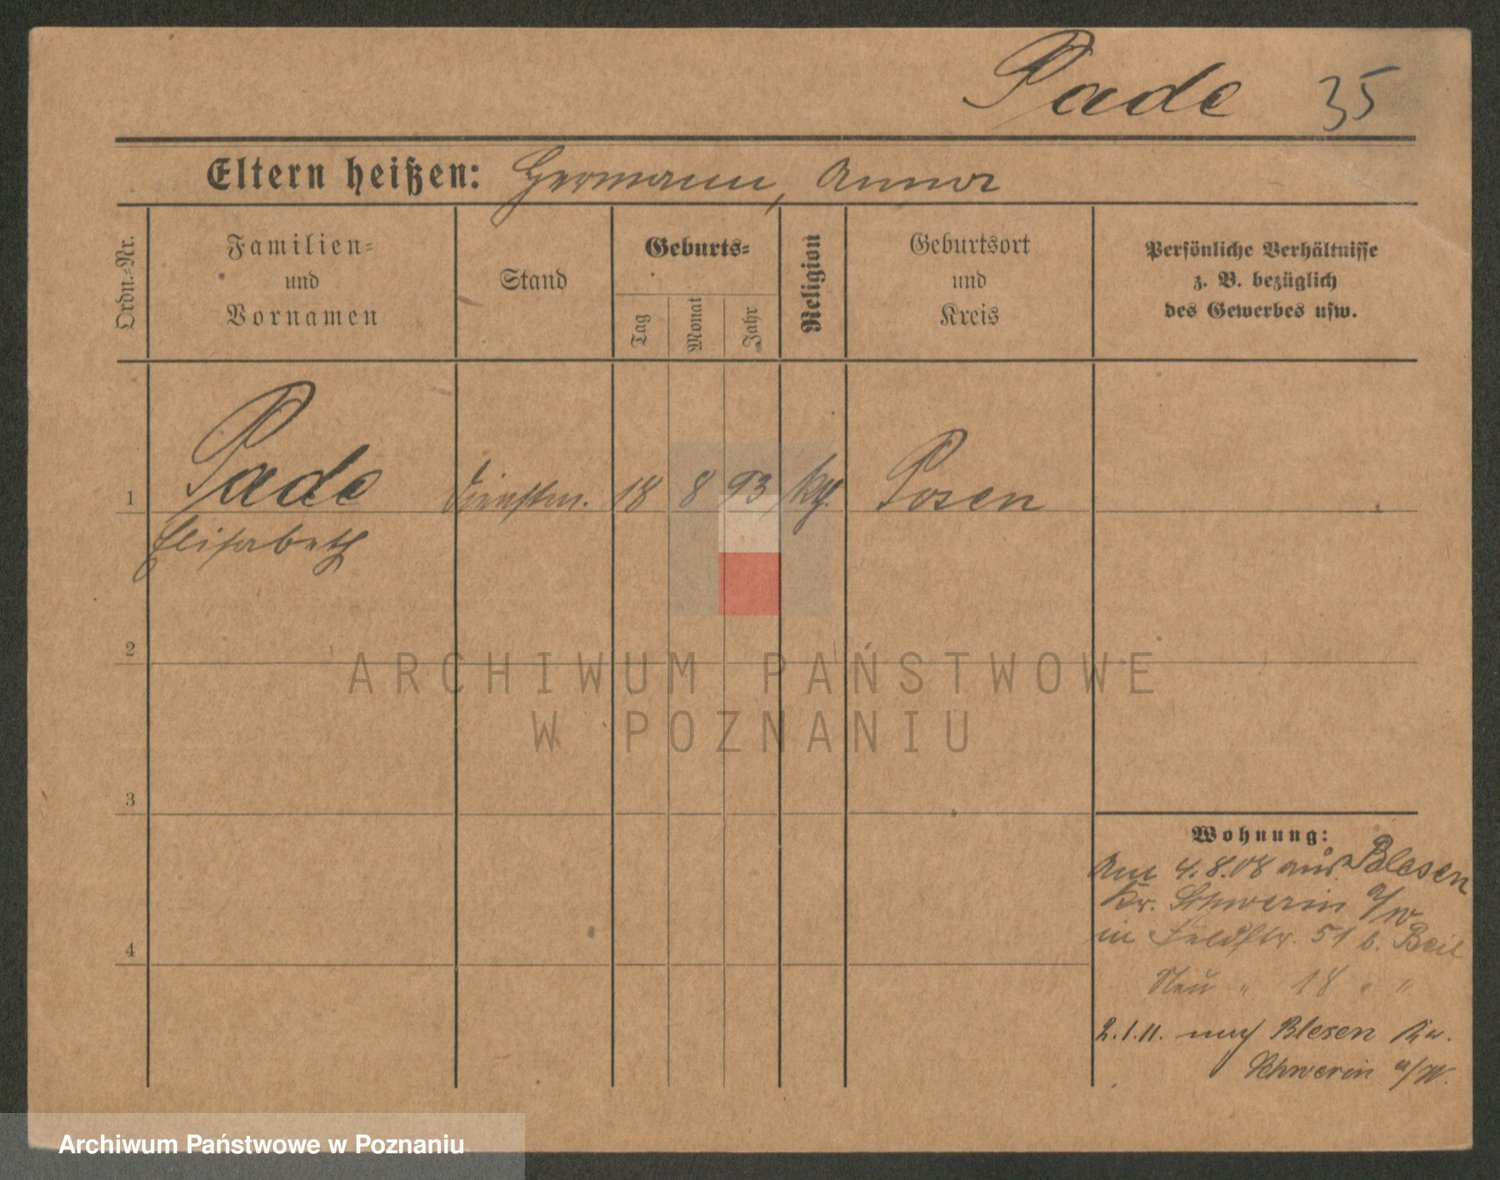 Pade 35
Eltern heißen: Hermann, Anna
Ordn.=Nr.
Familien=
und
Vornamen
Stand
Geburts=
Tag
Monat
Jahr
Religion
Geburtsort
und
Kreis
Persönliche Verhältnisse
z. B. bezüglich
des Gewerbes usw.
1 Pade Dienstm. 18 8 93 kth. Posen
Elisabeth
2
3
4
ARCHIWUM PAŃSTWOWE
W POZNANIU
Wohnung:
Am 4.8.08 aus Blesen
Kr. Schwerin a/W
in Feldstr. 51 b. Beil
Neu " 18 " "
2.1.11. nach Blesen Kr.
Schwerin a/W.
Archiwum Państwowe w Poznaniu